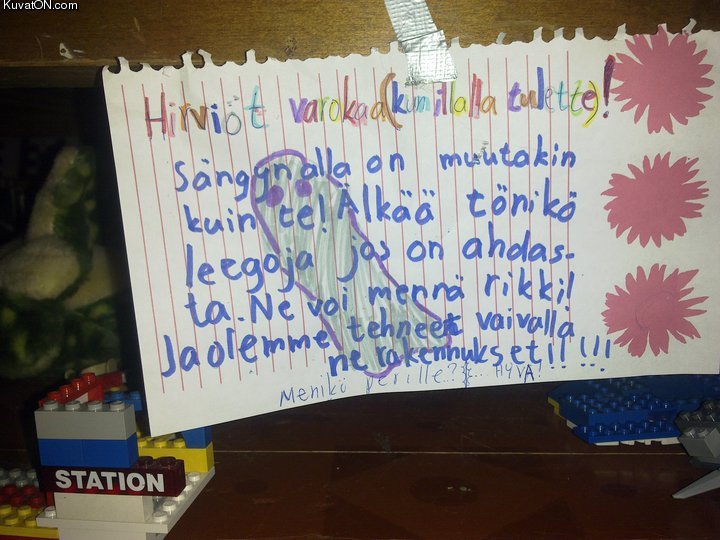 KuvatON.com
Hirviöt varokaa(kun illalla tulette)!
Sängyn alla on muutakin
kuin te! Älkää tönikö
leegoja jos on ahdas-
ta. Ne voi mennä rikki!
Ja olemme tehneet vaivalla
ne rakennukset!! !!!
Menikö perille?? HYVÄ!
STATION